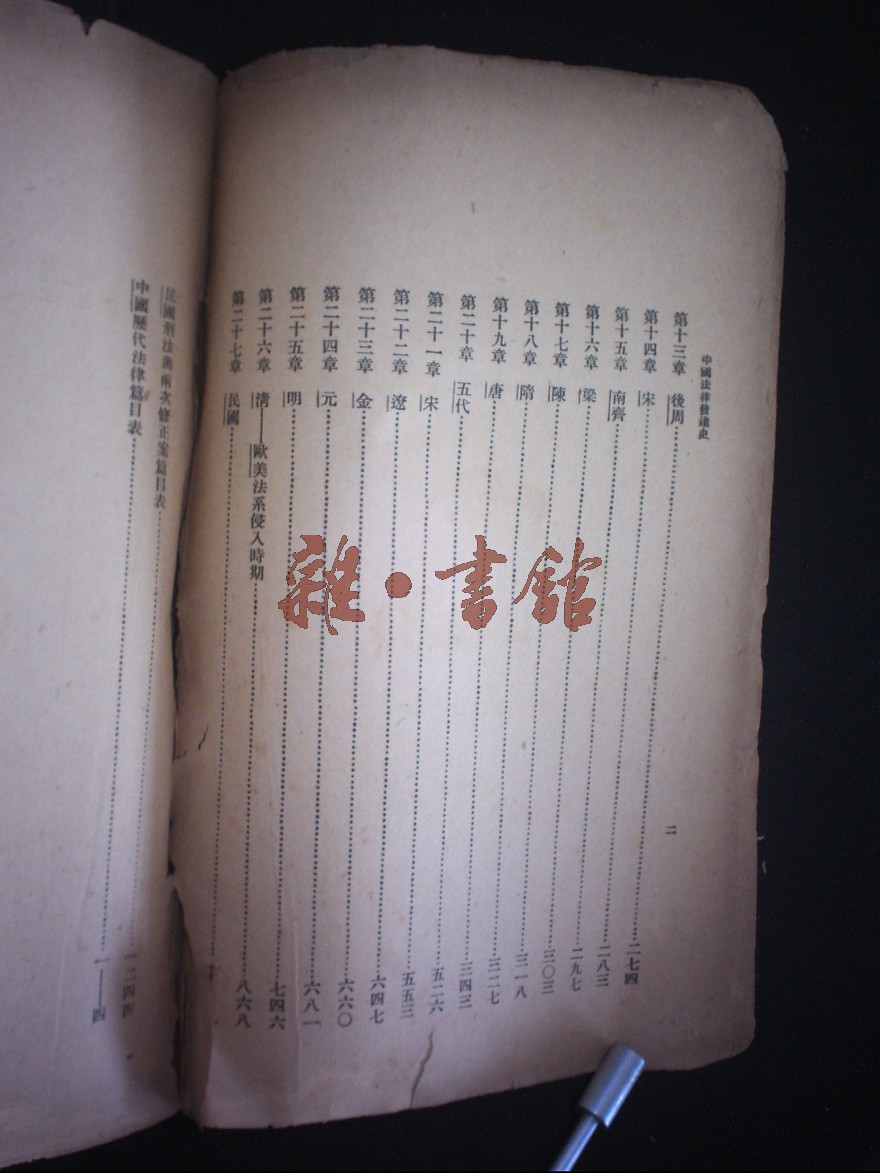 中國法律發達史
第十三章 後周……二七四
第十四章 宋……二八三
第十五章 南齊……二九七
第十六章 梁……三〇三
第十七章 陳……三一八
第十八章 隋……三二七
第十九章 唐……三四三
第二十章 五代……五二六
第二十一章 宋……五五三
第二十二章 遼……六四七
第二十三章 金……六六〇
第二十四章 元……六八一
第二十五章 明……七四六
第二十六章 清——歐美法系侵入時期……八六八
第二十七章 民國……
二
民國刑法與兩次修正案篇目表……一二四四
中國歷代法律篇目表……一——四
雜·書館